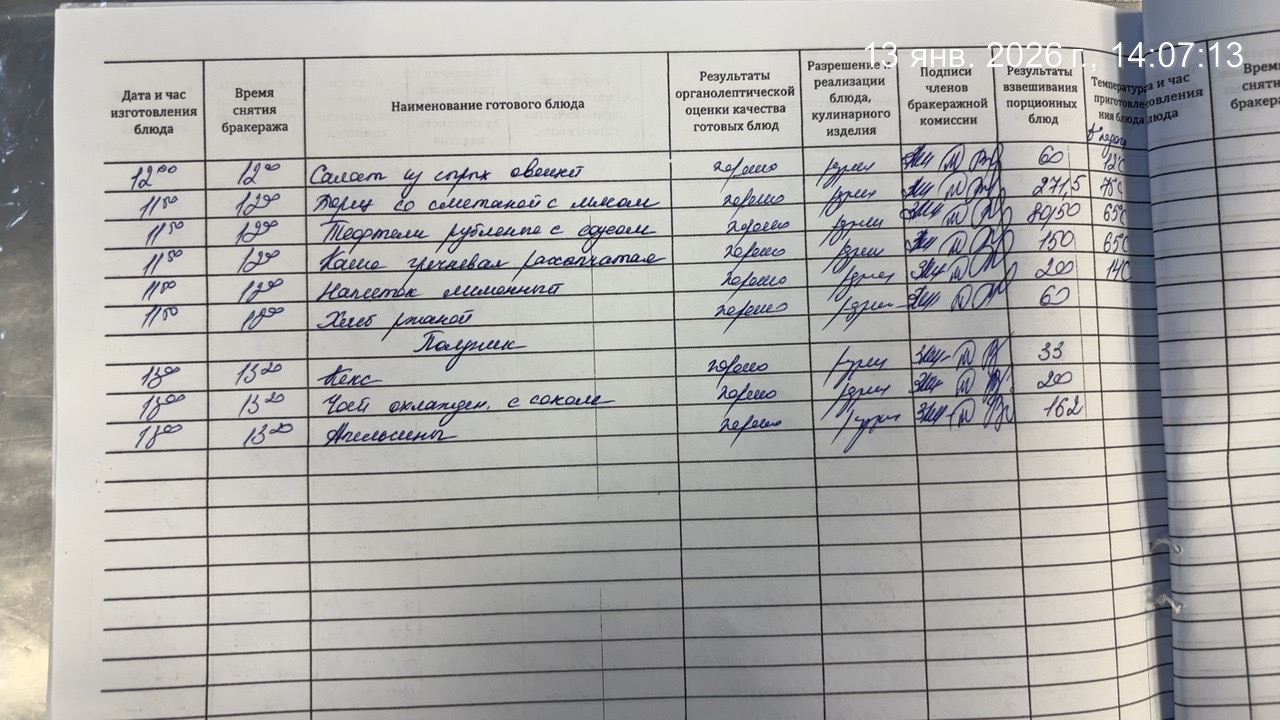 13 янв. 2026 г., 14:07:13
Дата и час изготовления блюда
Время снятия бракеража
Наименование готового блюда
Результаты органолептической оценки качества готовых блюд
Разрешение к реализации блюда, кулинарного изделия
Подписи членов бракеражной комиссии
Результаты взвешивания порционных блюд
Температура приготовления блюда
12 00 12 00 Салат из сырых овощей хорошо 60
11 50 12 00 Борщ со сметаной с мясом хорошо 271,5
11 50 12 00 Тефтели рубленые с соусом хорошо 80/50
11 50 12 00 Каша гречневая рассыпчатая хорошо 150
11 50 12 00 Напиток лимонный хорошо 200
11 50 12 00 Хлеб ржаной хорошо 60
Полдник
13 00 13 20 Кекс хорошо 33
13 00 13 20 Чай охлажден. с соком хорошо 200
13 00 13 20 Апельсины хорошо 162